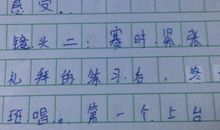 感受。
镜头二：赛时紧张
礼拜的练习后，终
班唱。第一个上台